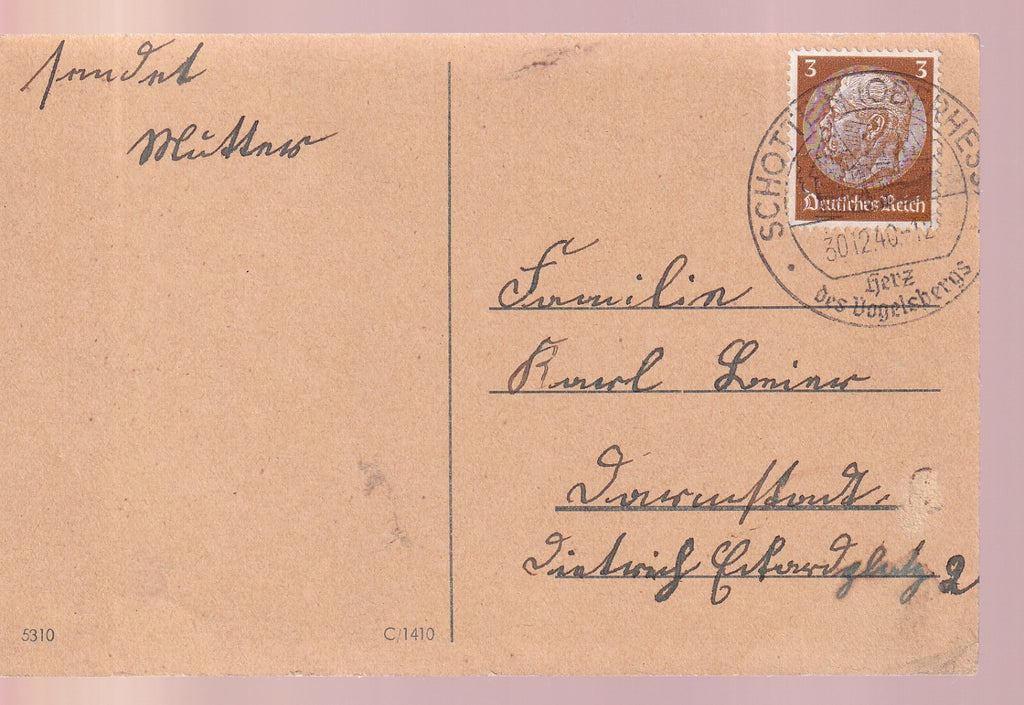 sendet
Mutter
3 3
Deutsches Reich
SCHOTTEN (OBERHESS
30.12.40.-12
Herz
des Vogelsbergs
Familie
Karl Leiner
Darmstadt.
Dietrich Eckardplatz 2
5310
C/1410